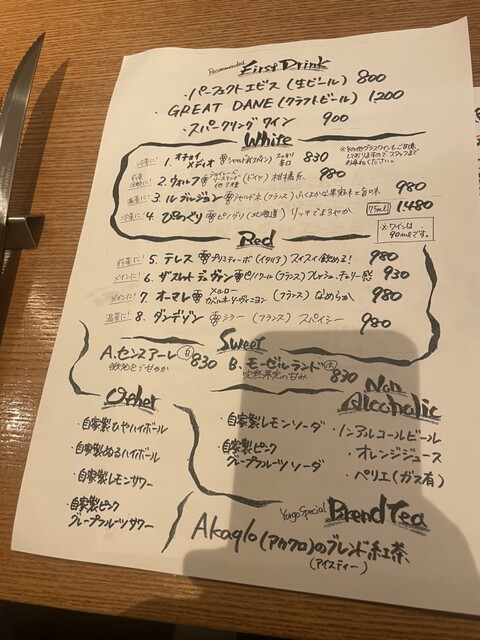 Recommended First Drink
・パーフェクトエビス(生ビール) 800
・GREAT DANE(クラフトビール) 1200
・スパークリングワイン 900
White
1. オチョイメディオ シャルドネ(スペイン) スッキリ辛口 830
※その他グラスワインもご用意しておりますのでスタッフまでお尋ねください。
2. ウォルフ (ドイツ) 柑橘系 980
3. ル・プルジョン シャルドネ(フランス) ふくよかな果実味と旨味 980
4. ぴのぐり ピノグリ(北海道) リッチでまろやか 75ml 1480
※ワインは90mlです。
Red
5. テレス プリミティーボ(イタリア) スイスイ飲める! 980
メインに! 6. ザ・スレット デュ ヴァン ピノノワール(フランス) フレッシュ、チェリー感 930
メインに! 7. オーマレ メルロー カベルネ・ソーヴィニヨン (フランス) なめらか 980
温菜に! 8. ダンデゾン シラー (フランス) スパイシー 980
Sweet
A. センスアーレ 白 830
B. モーゼルランド 830
完熟果実の甘み
Other
・自家製ひやハイボール
・自家製ぬるハイボール
・自家製レモンサワー
・自家製ピンクグレープフルーツサワー
Non Alcoholic
・自家製レモンソーダ
・自家製ピンクグレープフルーツソーダ
・ノンアルコールビール
・オレンジジュース
・ペリエ(ガス有)
Yorgo Special Brend Tea
Akaglo(アカグロ)のブレンド紅茶
(アイスティー)